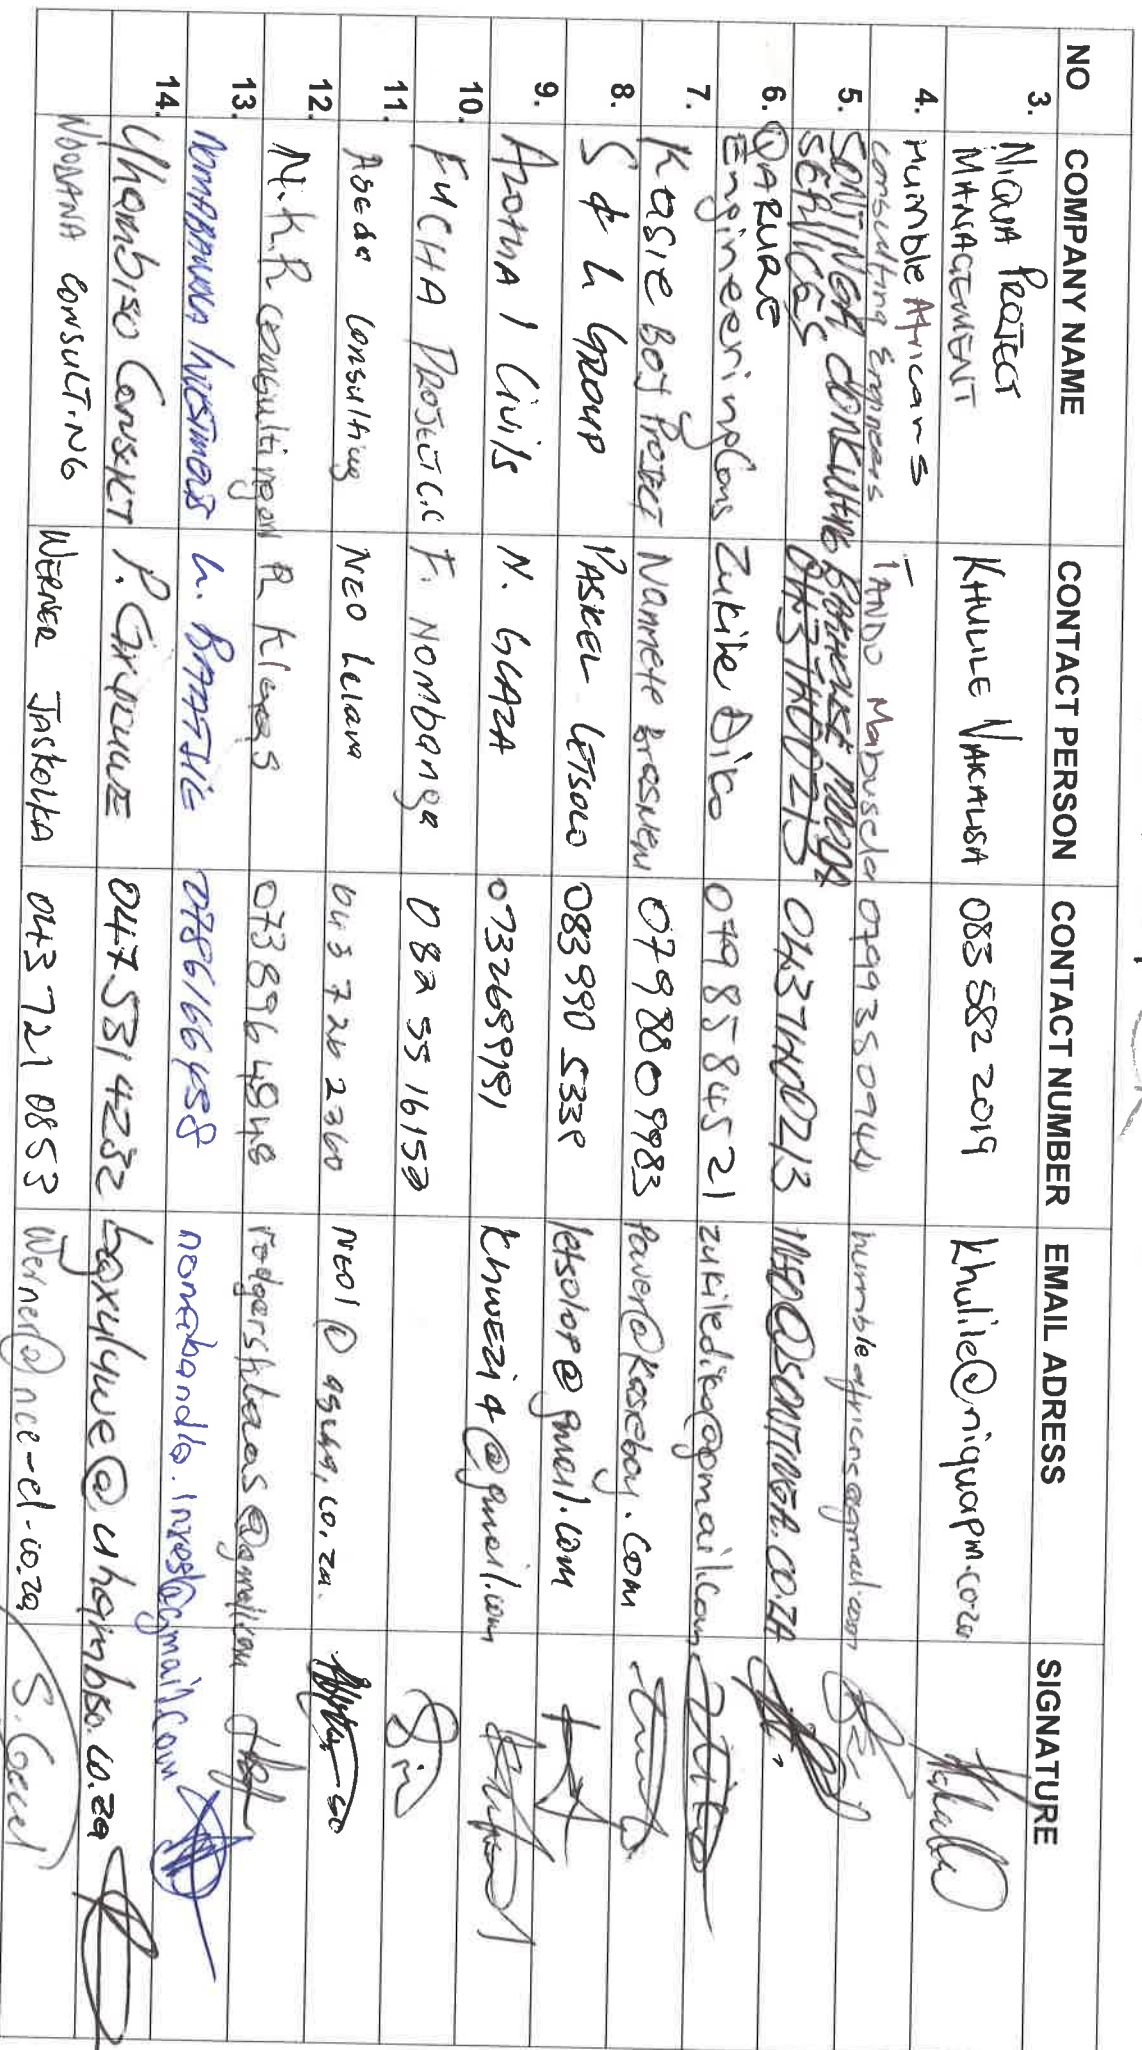 NO COMPANY NAME CONTACT PERSON CONTACT NUMBER EMAIL ADRESS SIGNATURE
3. NIQUA PROJECT MANAGEMENT KHULILE VAKALISA 083 582 2019 khulile@niquapm.co.za
4. Humble Africans Consulting Engineers TANDO Mabuscler 0799350944 humbleafricans@gmail.com
5. SONTINGA CONSULTING SERVICES 0437400213 0437400213 INFO@SONTINGA.CO.ZA
6. QARURE Engineering Cons Zukile Diko 0798584521 zukilediko@gmail.com
7. Kasie Boy Project 0798809983 Power@Kasieboy.com
8. S & L GROUP PASKEL LETSOLO 083 990 5339 letsolop@gmail.com
9. AZONA 1 Civils N. GCAZA 0732699191 Khwezi9@gmail.com
10. FUCHA PROJECT C.C F. Nombanga 082 55 16152
11. Aseda Consulting NEO Lelana 043 726 2360
12. N.K.R consulting R Klaas 0738964948 rodgersklaas@gmail.com
13. NOMABANDLA INVESTMENTS L. BAATJIE 0786166458 nomabandla.invest@gmail.com
14. Uhambiso Consult P. Gxipululwe 047 531 4232 @uhambiso.co.za
NDODANA CONSULTING WERNER JASKOLKA 043 721 0853 Werner@nce-el.co.za S. Gecel